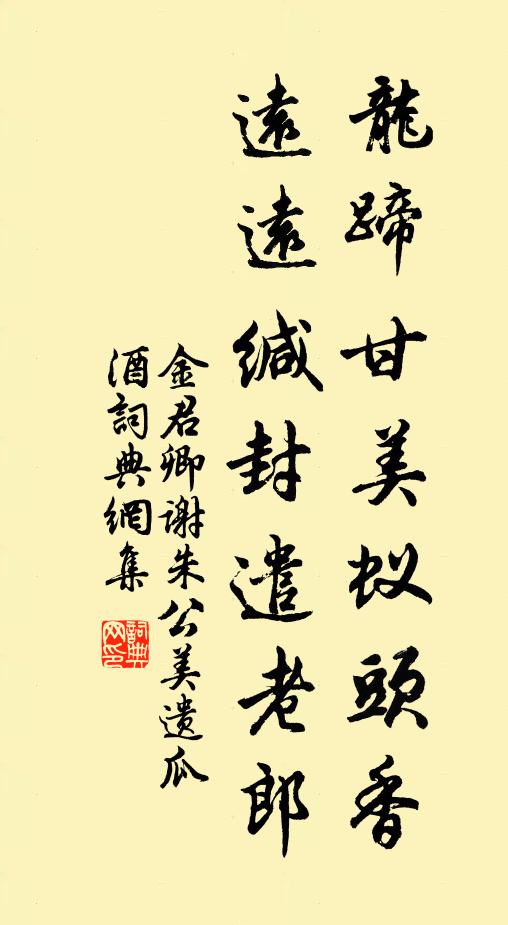 龍蹄甘美蚁頭香
遠遠緘封遣老郎
金君卿谢朱公美遗瓜
酒詞典網集
詞典网印